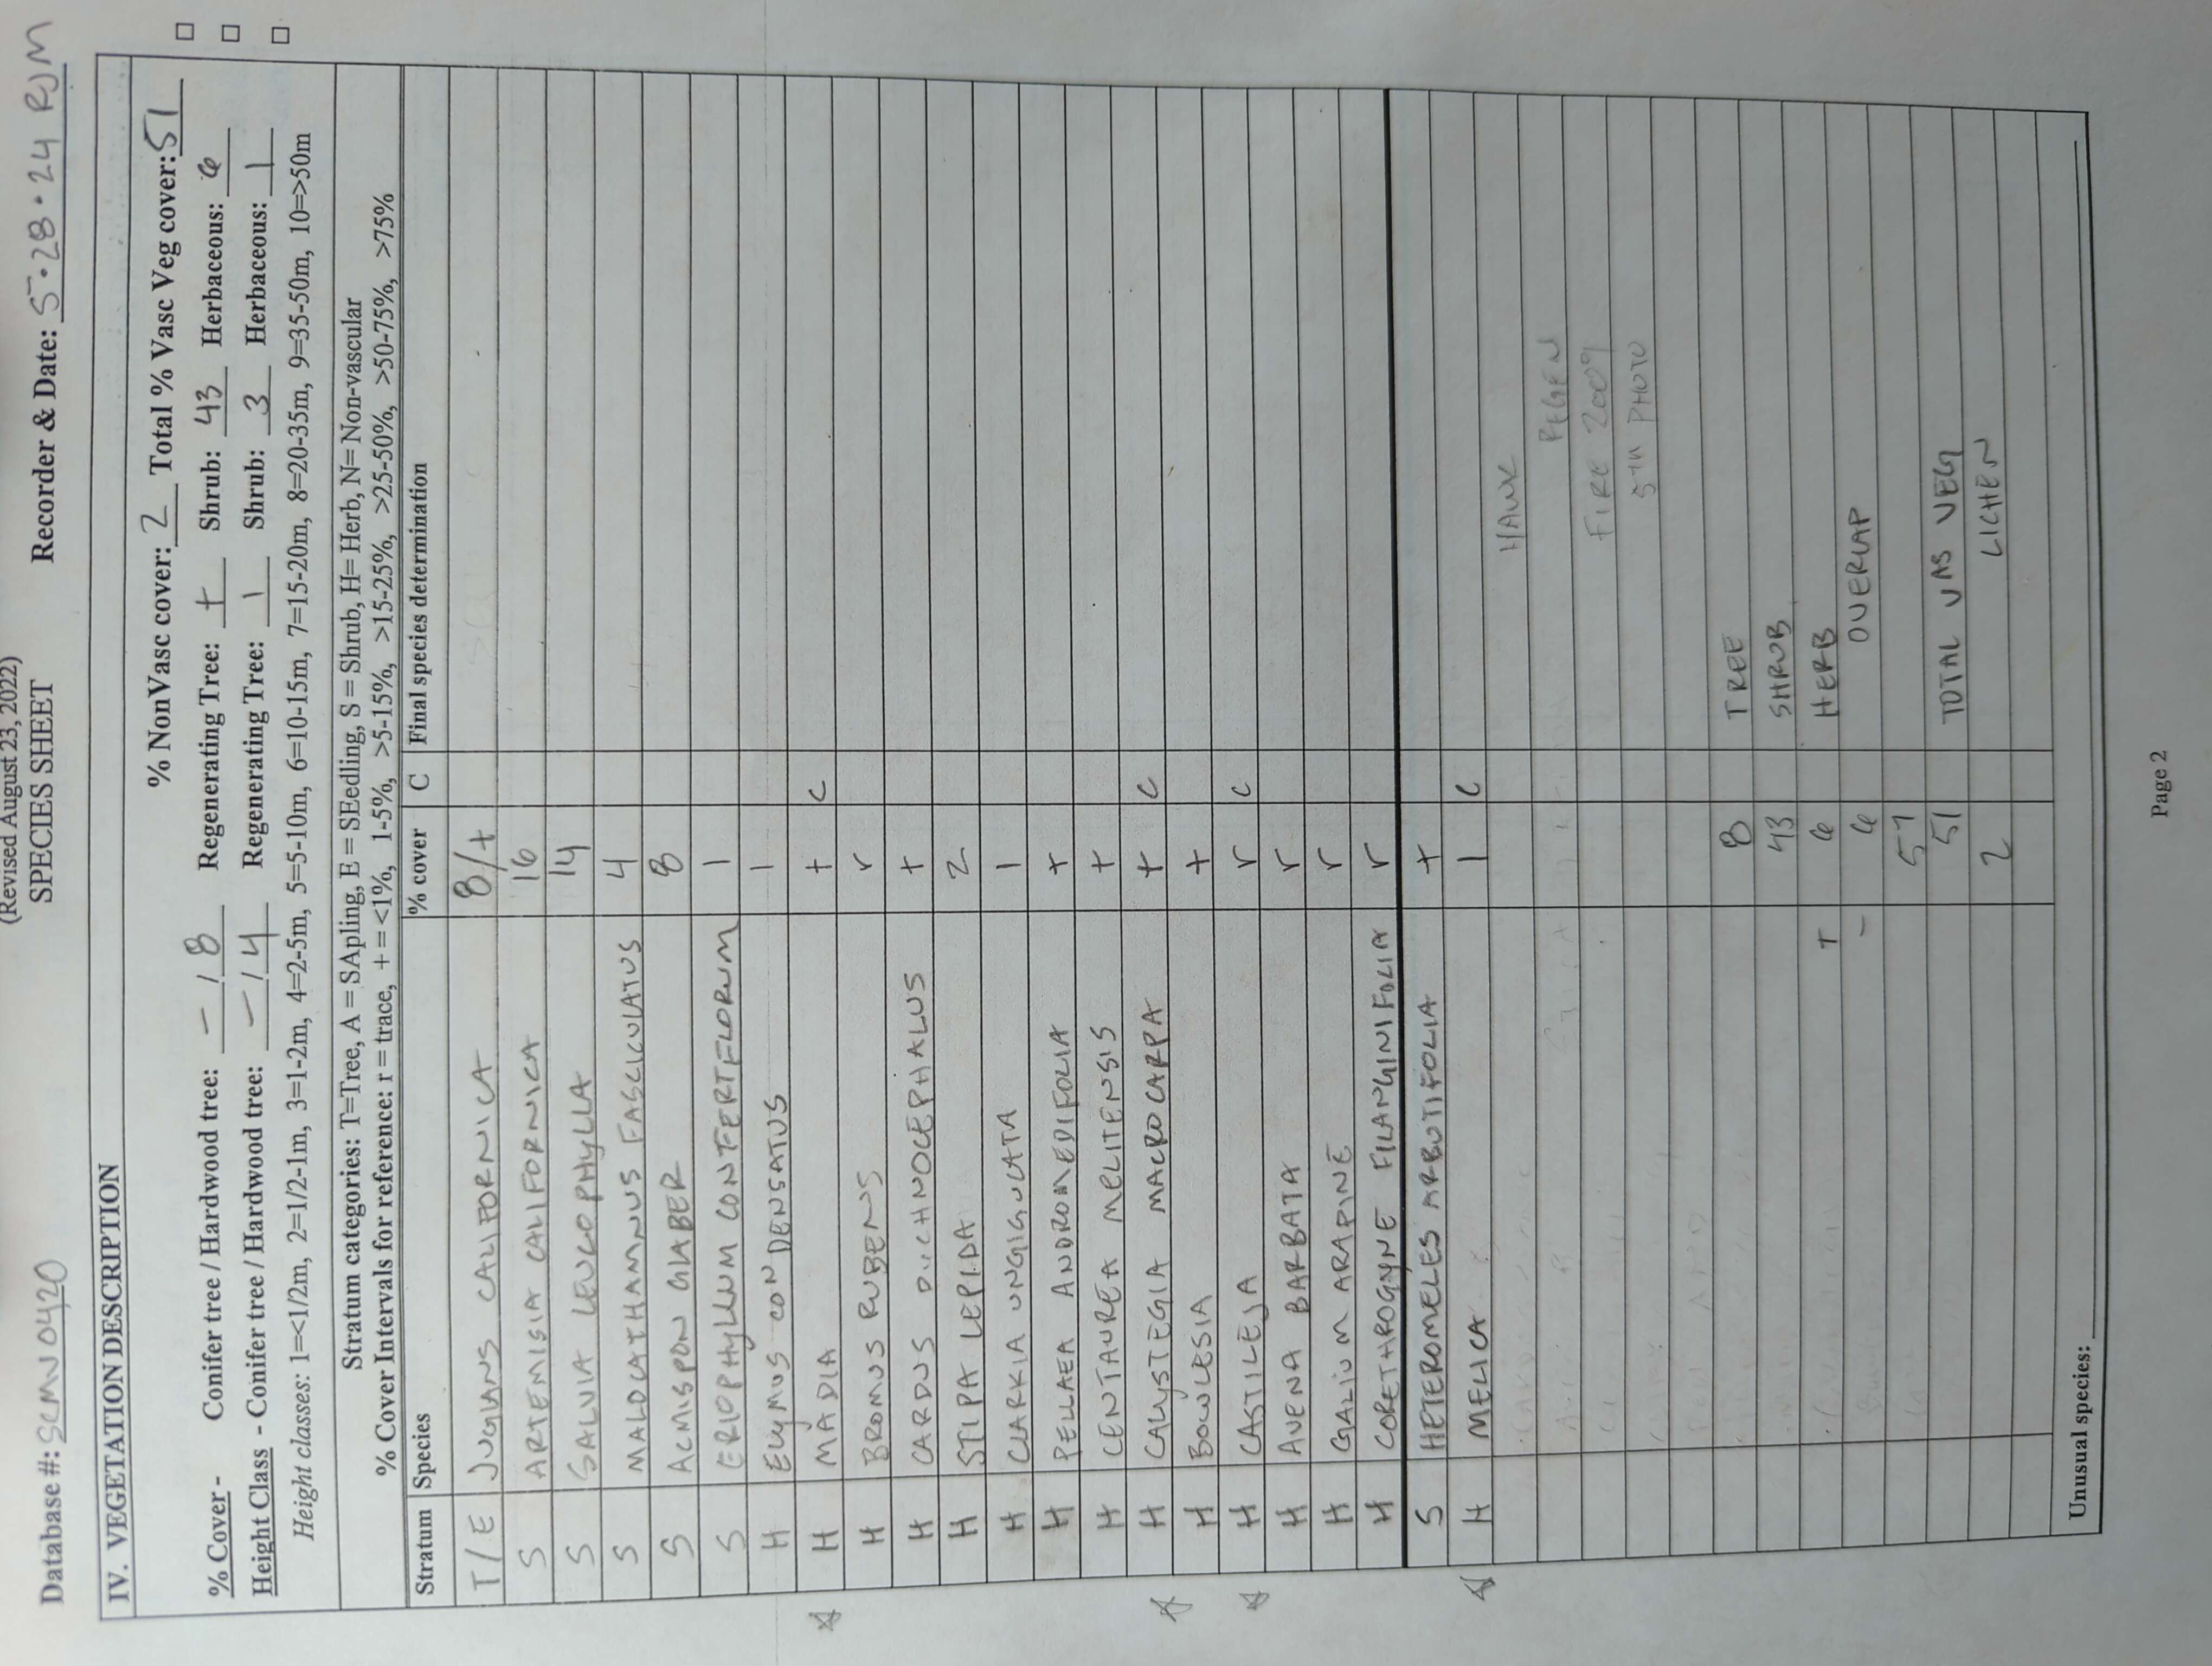 (Revised August 23, 2022)
SPECIES SHEET
Database #: SCMN0420 Recorder & Date: 5·28·24 RJM
IV. VEGETATION DESCRIPTION
% NonVasc cover: 2 Total % Vasc Veg cover: 51
% Cover - Conifer tree / Hardwood tree: - / 8 Regenerating Tree: + Shrub: 43 Herbaceous: 6
Height Class - Conifer tree / Hardwood tree: - / 4 Regenerating Tree: 1 Shrub: 3 Herbaceous: 1
Height classes: 1=<1/2m, 2=1/2-1m, 3=1-2m, 4=2-5m, 5=5-10m, 6=10-15m, 7=15-20m, 8=20-35m, 9=35-50m, 10=>50m
Stratum categories: T=Tree, A = SApling, E = SEedling, S = Shrub, H= Herb, N= Non-vascular
% Cover Intervals for reference: r = trace, + = <1%, 1-5%, >5-15%, >15-25%, >25-50%, >50-75%, >75%
Stratum Species % cover C Final species determination
T/E JUGLANS CALIFORNICA 8/+
S ARTEMISIA CALIFORNICA 16
S SALVIA LEUCOPHYLLA 14
S MALOCATHAMNUS FASCICULATUS 4
S ACMISPON GLABER 8
S ERIOPHYLLUM CONFERTFLORUM 1
H ELYMUS CONDENSATUS 1
☆ H MADIA + C
H BROMUS RUBENS r
H CARDUS PYCHNOCEPHALUS +
H STIPA LEPIDA 2
H CLARKIA UNGIGULATA 1
H PELLAEA ANDROMEDIFOLIA +
H CENTAUREA MELITENSIS +
☆ H CALYSTEGIA MACROCARPA + C
H BOWLESIA +
☆ H CASTILEJA r C
H AVENA BARBATA r
H GALIUM ARAPINE r
H CORETHROGYNE FILANGINIFOLIA r
S HETEROMELES ARBUTIFOLIA +
☆ H MELICA 1 C
HAWK
REGEN
FIRE 2009
5TH PHOTO
8 TREE
43 SHRUB
+ 6 HERB
- 6 OVERLAP
57
51 TOTAL VAS VEG
2 LICHEN
Unusual species:
Page 2